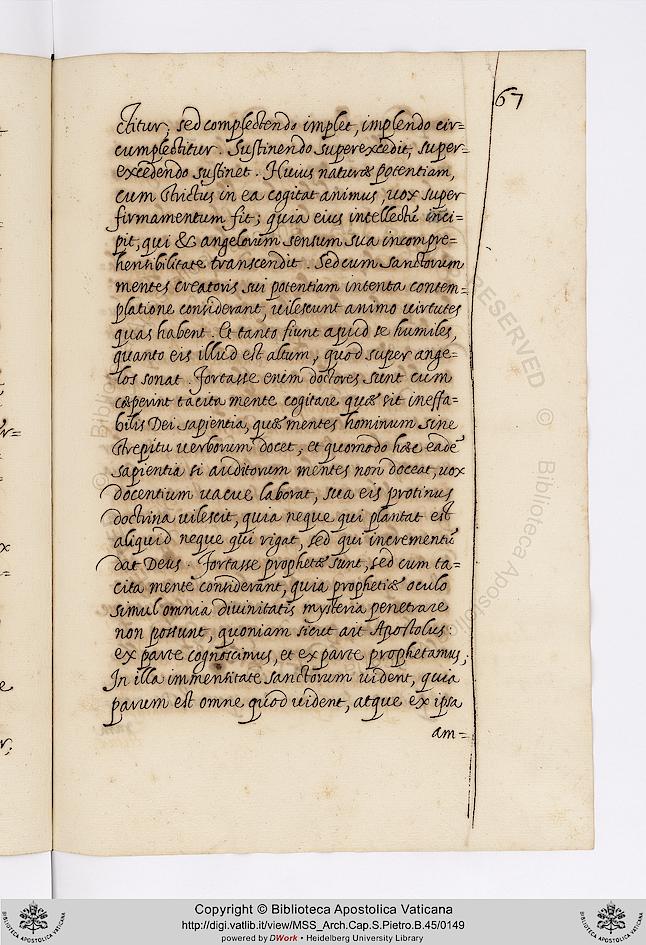 67
ctitur; sed complectendo implet, implendo cir=
cumplectitur. Sustinendo superexcedit, super=
excedendo sustinet. Huius naturæ potentiam,
cum strictus in ea cogitat animus, uox super
firmamentum fit; quia eius intellectū inci=
pit, qui & angelorum sensum sua incompre=
hensibilitate transcendit. Sed cum sanctorum
mentes creatoris sui potentiam intenta contem=
platione considerant, uilescunt animo uirtutes
quas habent. Et tanto fiunt apud se humiles,
quanto eis illud est altum, quod super ange=
los sonat. Fortasse enim doctores sunt cum
cæperint tacita mente cogitare quæ sit ineffa=
bilis Dei sapientia, quæ mentes hominum sine
strepitu uerborum docet, et quomodo hæc eadē
sapientia si auditorum mentes non doceat, uox
docentium uacue laborat, sua eis protinus
doctrina uilescit, quia neque qui plantat est
aliquid neque qui rigat, sed qui incrementū
dat Deus. Fortasse prophetæ sunt, sed cum ta=
cita mente considerant, quia prophetiæ oculo
simul omnia diuinitatis mysteria penetrare
non possunt, quoniam sicut ait Apostolus:
ex parte cognoscimus, et ex parte prophetamus;
In illa immensitate sanctorum uident, quia
paruum est omne quod uident, atque ex ipsa
am=
Copyright © Biblioteca Apostolica Vaticana
http://digi.vatlib.it/view/MSS_Arch.Cap.S.Pietro.B.45/0149
powered by DWork • Heidelberg University Library